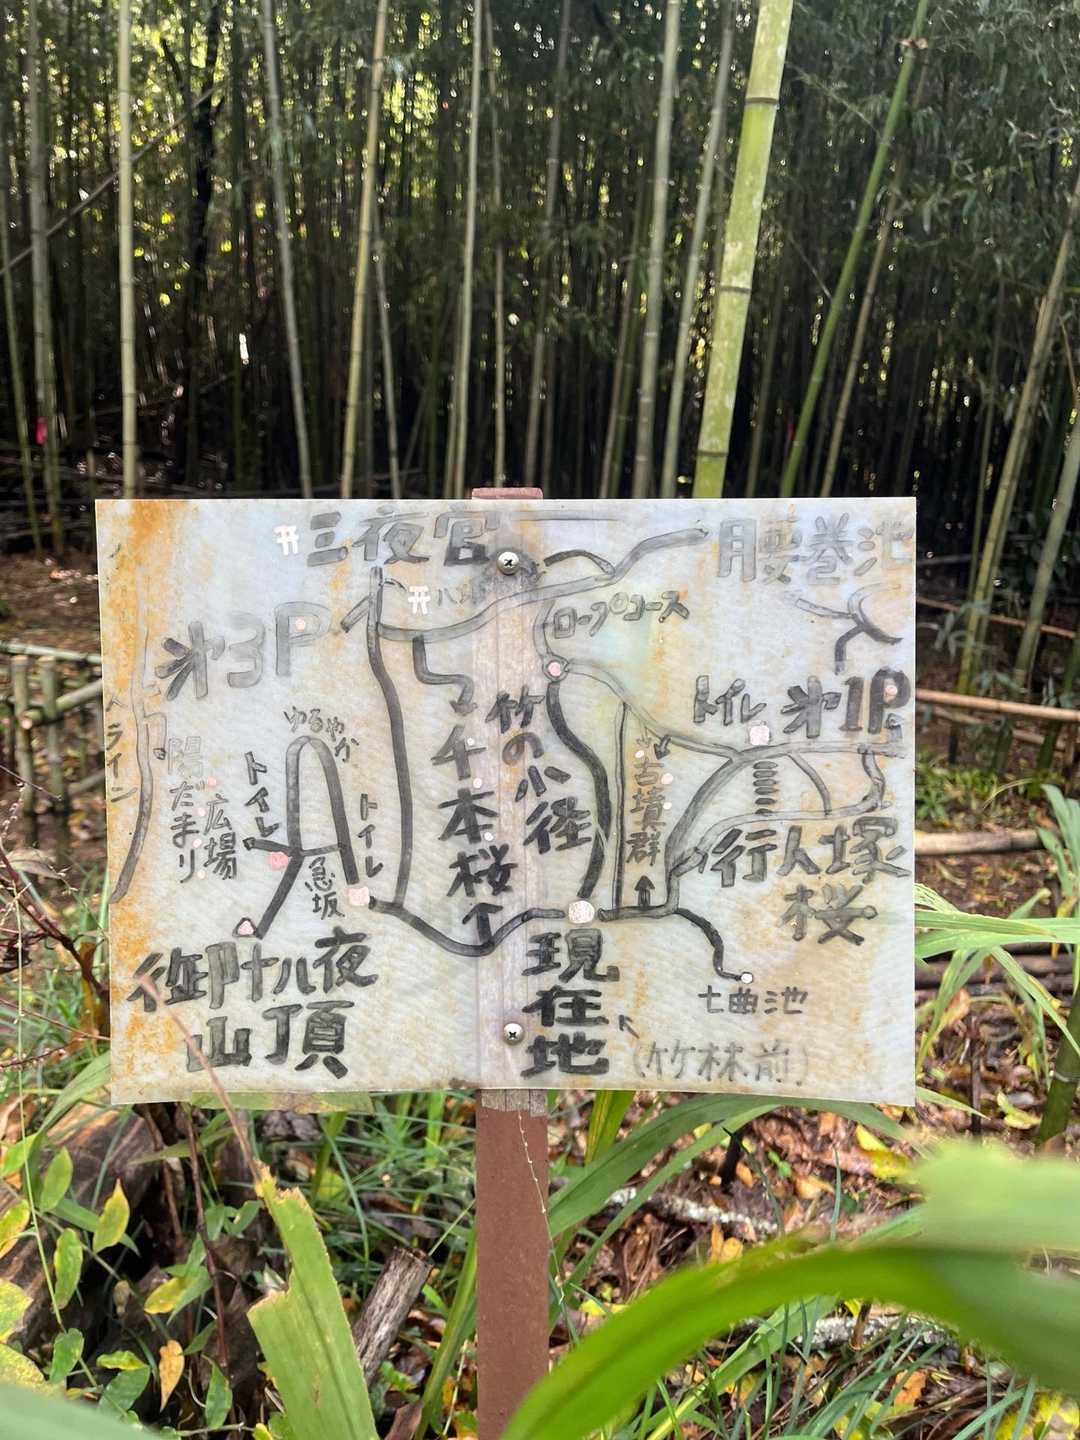 三夜宮
腰巻池
八坂
ロープコース
㐧3P
トイレ
㐧1P
ゆるやか
竹の小径
千本桜
古墳群
陽だまり
広場
トイレ
トイレ
急坂
行人塚
桜
御叶八夜
山頂
現在地
(竹林前)
七曲池